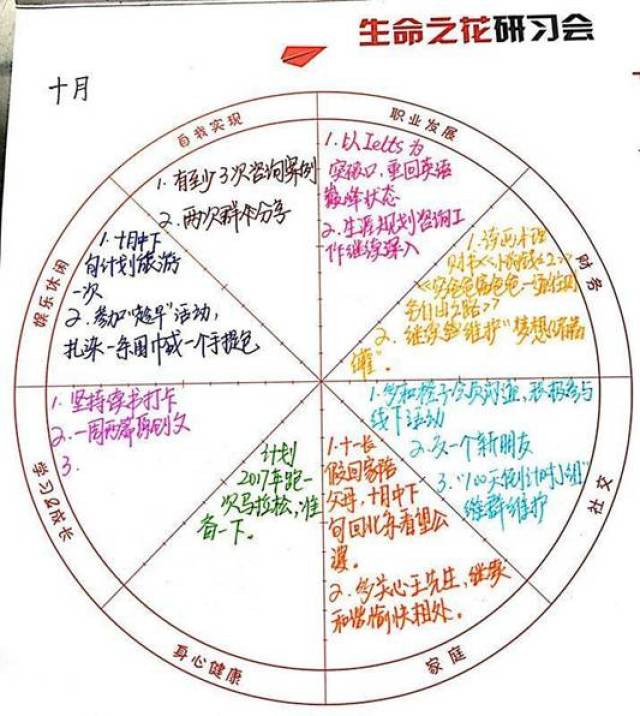 生命之花研习会
十月
自我实现
1. 有至少3次咨询案例
2. 两次群内分享
职业发展
1. 以Ielts为
突破口,重回英语
巅峰状态
2. 生涯规划咨询工
作继续深入
财务
1. 读两本理
财书<<小狗钱钱2>>
<<富爸爸穷爸爸
自由之路>>
2. 继续 维护"梦想储蓄
罐"。
社交
1. 多和橙子会员沟通,积极参与
线下活动
2. 交一个新朋友
3. "100天倒计时小组"
维群维护
家庭
1. 十一长
假回家陪
父母,十月中下
旬回北京看望公
婆。
2. 多关心王先生,继续
和谐愉快相处。
身心健康
计划
2017年跑一
次马拉松,准
备一下。
学习&成长
1. 坚持读书打卡
2. 一周两篇原创文
3.
娱乐休闲
1. 十月中下
旬计划旅游
一次
2. 参加"趁早"活动,
扎染一条围巾或一个手提包